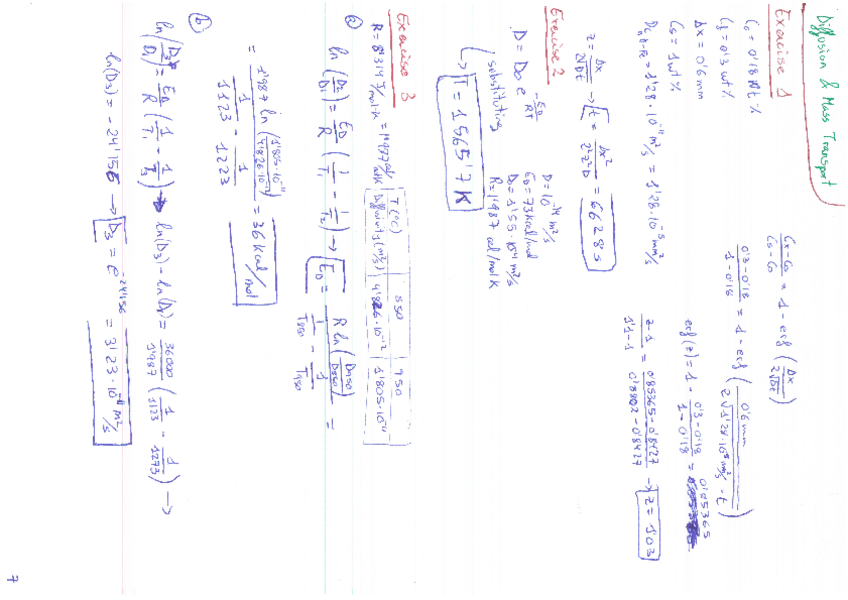 Diffusion & Mass Transport
Exercise 1
C₀ = 0'18 wt %
Cₓ = 0'3 wt %
Δx = 0'6 mm
Cₛ = 1 wt %
= 1'28·10⁻¹¹ m²/s = 1'28·10⁻⁵ mm²/s
(Cx - C₀)/(Cs - C₀) = 1 - erf (Δx/(2√(Dt)))
(0'3 - 0'18)/(1 - 0'18) = 1 - erf (0'6 mm/(2√(1'28·10⁻⁵ mm²/s · t)))
erf(z) = 1 - (0'3 - 0'18)/(1 - 0'18) = 0'85365
(z - 1)/(1'1 - 1) = (0'85365 - 0'8427)/(0'8802 - 0'8427) → z = 1'03
z = Δx/(2√(Dt)) → t = Δx²/(2²z²D) = 6628 s
Exercise 2
D = D₀ e^(-E_D/RT)
D = 10⁻¹⁴ m²/s
E_D = 73 kcal/mol
R = 1'987 cal/mol K
substituting
T = 1565'7 K
Exercise 3
R = 8'314 J/mol K = 1'987 cal/mol K
T (°C) 850 950
Diffusivity (m²/s) 4'826·10⁻¹² 1'805·10⁻¹¹
a
ln (D₂/D₁) = E_D/R (1/T₁ - 1/T₂) → E_D = R ln(D₉₅₀/D₈₅₀)/(1/T₈₅₀ - 1/T₉₅₀) =
= 1'987 ln (1'805·10⁻¹¹/4'826·10⁻¹²)/(1/1123 - 1/1223) = 36 kcal/mol
b
ln(D₃/D₁) = E_D/R (1/T₁ - 1/T₃) → ln(D₃) - ln(D₁) = 36000/1'987 (1/1123 - 1/1273) →
ln(D₃) = -24'156 → D₃ = e^(-24'156) = 3'23·10⁻¹¹ m²/s
7